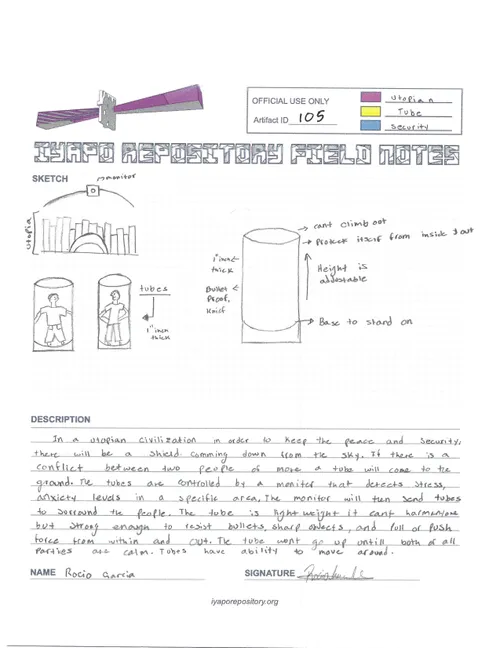 OFFICIAL USE ONLY
Artifact ID 105
utopian
Tube
Security
IYAPO REPOSITORY FIELD NOTES
SKETCH
monitor
utopia
tubes
1" inch
thick
cant climb out
Protect itself from inside & out
1" inch
thick
Bullet
Proof,
Height is
Base to stand on
DESCRIPTION
In a utopian civilization in order to keep the peace and security,
there will be a shield comming down from the sky. If there is a
conflict between two people or more a tube will come to the
ground. The tubes are controlled by a monitor that detects stress,
anxiety levels in a specific area, The monitor will then send tubes
to surround the people. The tube is light weight it cant harm anyone
but strong enough to resist bullets, sharp objects, and pull or push
force from within and out. The tube wont go up untill both or all
Parties are calm. Tubes have ability to move around.
NAME Rocio Garcia
SIGNATURE
iyaporepository.org